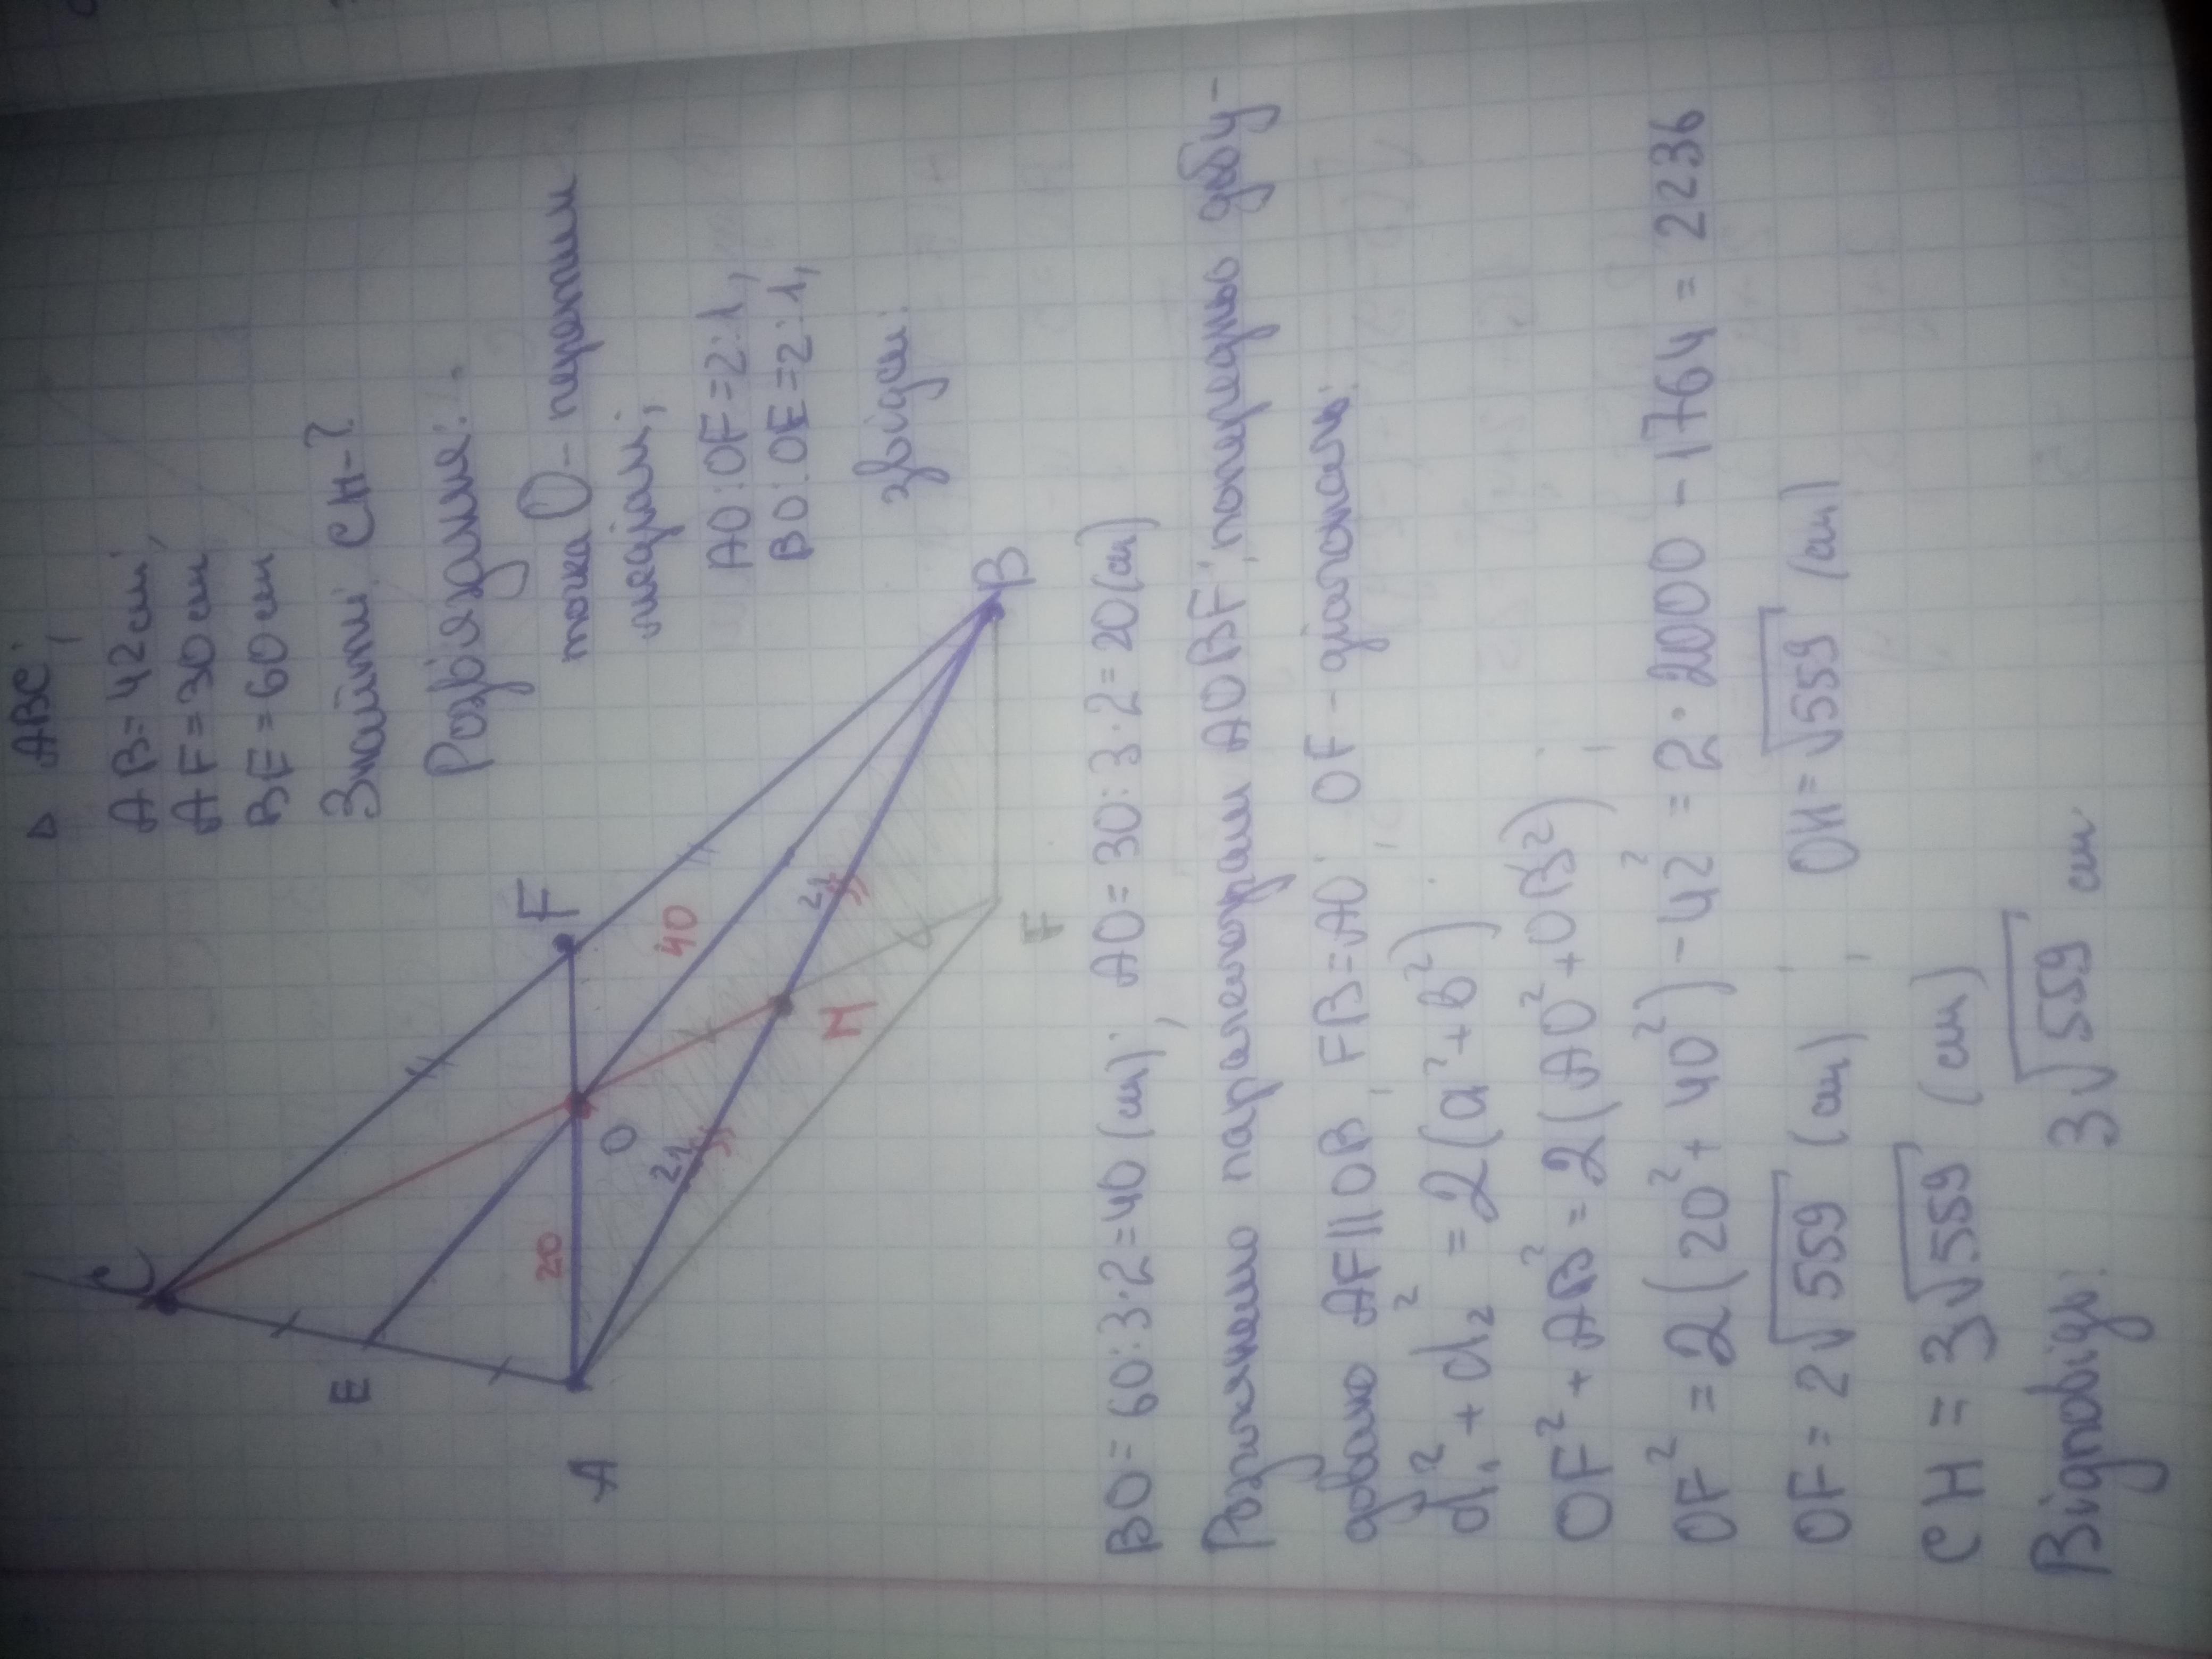 △ ABC;
AB = 42 см,
AF = 30 см
BE = 60 см
Знайти: CH-?
Розв'язання:
точка O - перетин
медіан;
AO:OF = 2:1,
BO:OE = 2:1,
звідси:
C
E
F
20
40
O
21
21
A
H
B
F
BO = 60:3·2 = 40 (см); AO = 30:3·2 = 20 (см)
Розглянемо паралелограм AOBF, попередньо добу-
довано AF || OB, FB = AO; OF - діагональ:
d₁² + d₂² = 2(a² + b²)
OF² + AB² = 2(AO² + OB²);
OF² = 2(20² + 40²) - 42² = 2·2000 - 1764 = 2236
OF = 2√559 (см); OH = √559 (см)
CH = 3√559 (см)
Відповідь: 3√559 см